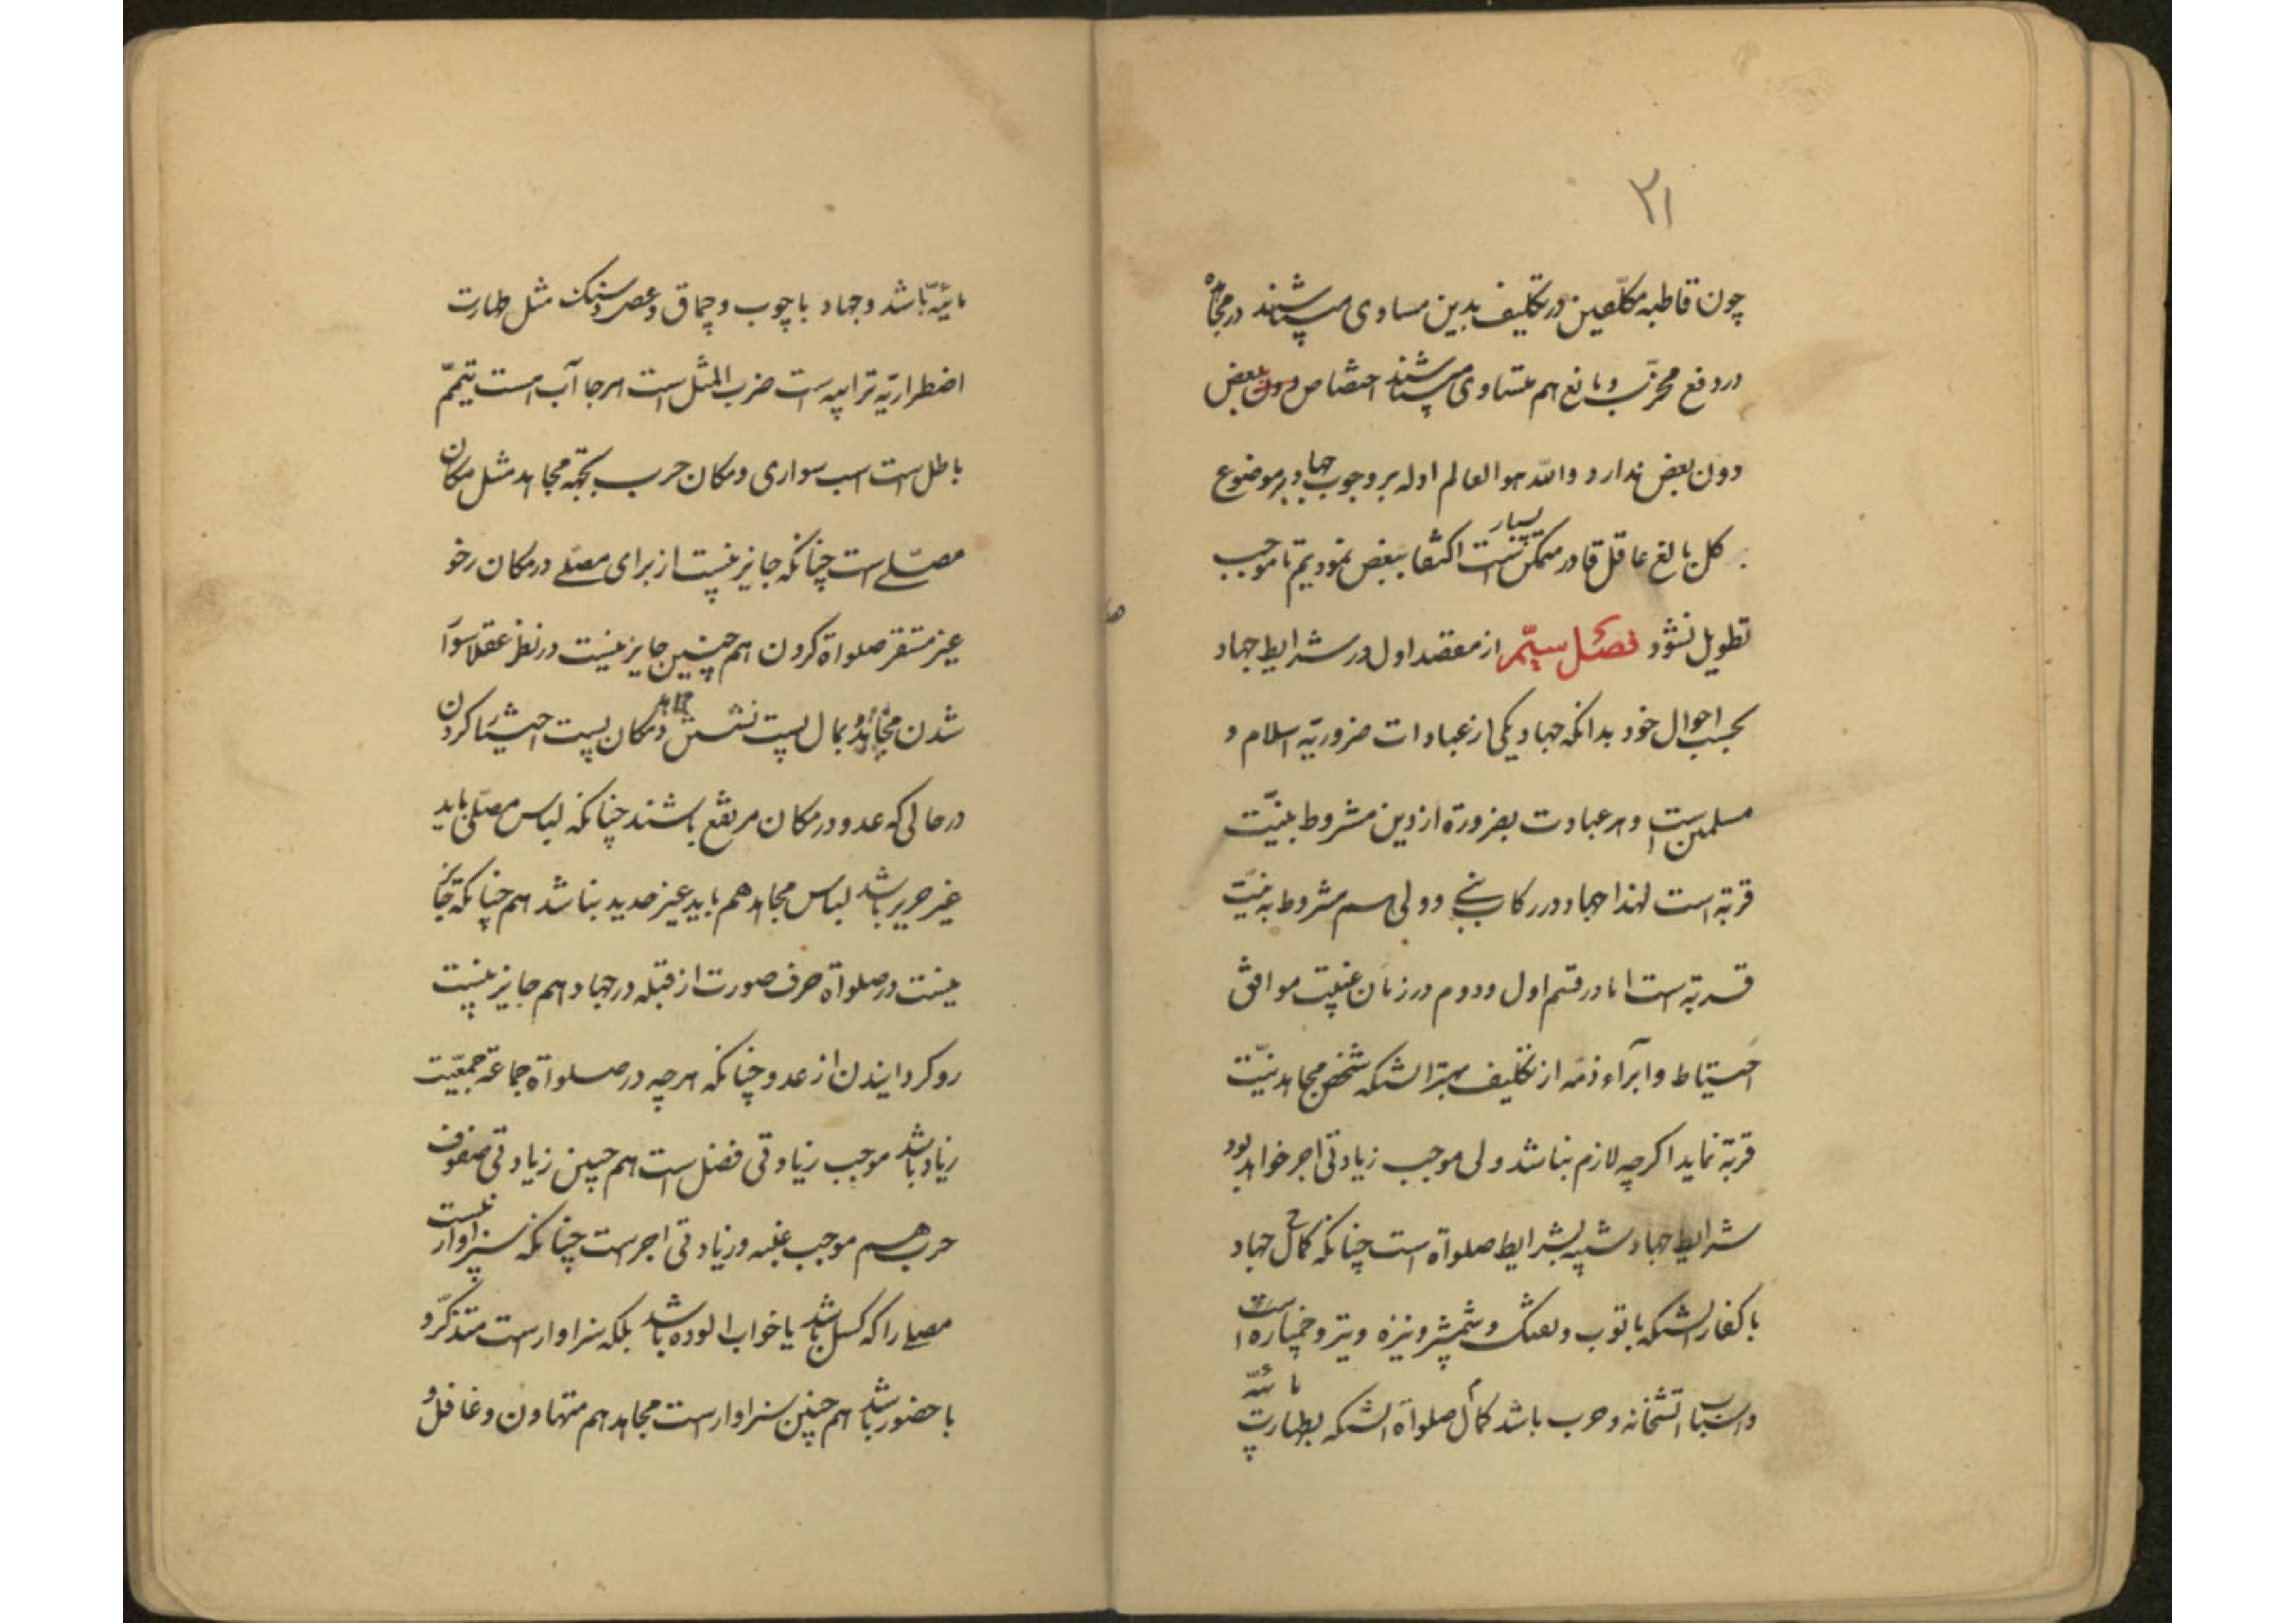 ۲۱
چون قاطبه مکلّفین در تکلیف بدین مساوی میباشند در مجاهده
در دفع مخرّب و مانع هم متساوی میباشند اختصاص ببعض
دون بعض ندارد والله هو العالم ادله بر وجوب جهاد بر موضوع
کل بالغ عاقل قادر متمکن بسیار است اکتفا ببعض نمودیم تا موجب
تطویل نشود فصل سیّم از مقصد اول در شرایط جهاد
بحسب احوال خود بدانکه جهاد یکی از عبادات ضروریّه اسلام و
مسلمین است و هر عبادت بضرورة از دین مشروط بنیّت
قربة است لهذا جهاد در رکاب نبی و ولی هم مشروط به نیّت
قربة است اما در قسم اول و دوم در زمان غیبت موافق
احتیاط و ابرآء ذمّه از تکلیف بهتر انستکه شخص مجاهد نیّت
قربة نماید اکرچه لازم نباشد ولی موجب زیادتی اجر خواهد بود
شرایط جهاد شبیه بشرایط صلواة است چنانکه کمال جهاد
با کفار انستکه با توب و تفنک و شمشیر و نیزه و تیر و خمپاره است
و اسباب اتشخانه و حرب باشد کمال صلواة انستکه بطهارت مائیّه
مائیّه باشد و جهاد با چوب و چماق و عصا و سنک مثل طهارت
اضطراریّه ترابیه است ضرب المثل است هرجا آب هست تیمّم
باطل است اسب سواری و مکان حرب بجهّة مجاهد مثل مکان
مصلّی است چنانکه جایز نیست از برای مصلّی در مکان رخو
غیر مستقر صلواة کردن هم چنین جایز نیست در نظر عقلا سوار
شدن مجاهد بمال پست نشستن و مکان پست اختیار کردن
در حالی که عدو در مکان مرتفع باشند چنانکه لباس مصلّی باید
غیر حریر باشد لباس مجاهد هم باید غیر حدید نباشد هم چنانکه جائز
نیست در صلواة حرف صورت از قبله در جهاد هم جایز نیست
رو کردایندن از عدو چنانکه هرچه در صلواة جماعة جمعّیت
زیاد باشد موجب زیادتی فضل است هم چنین زیادتی صفوف
حرب هم موجب غلبه و زیادتی اجر است چنانکه سزاوار نیست
مصلی را که کسل باشد یا خواب الوده باشد بلکه سزاوار است متذکّر و
با حضور باشد هم چنین سزاوار است مجاهد هم متهاون و غافل و